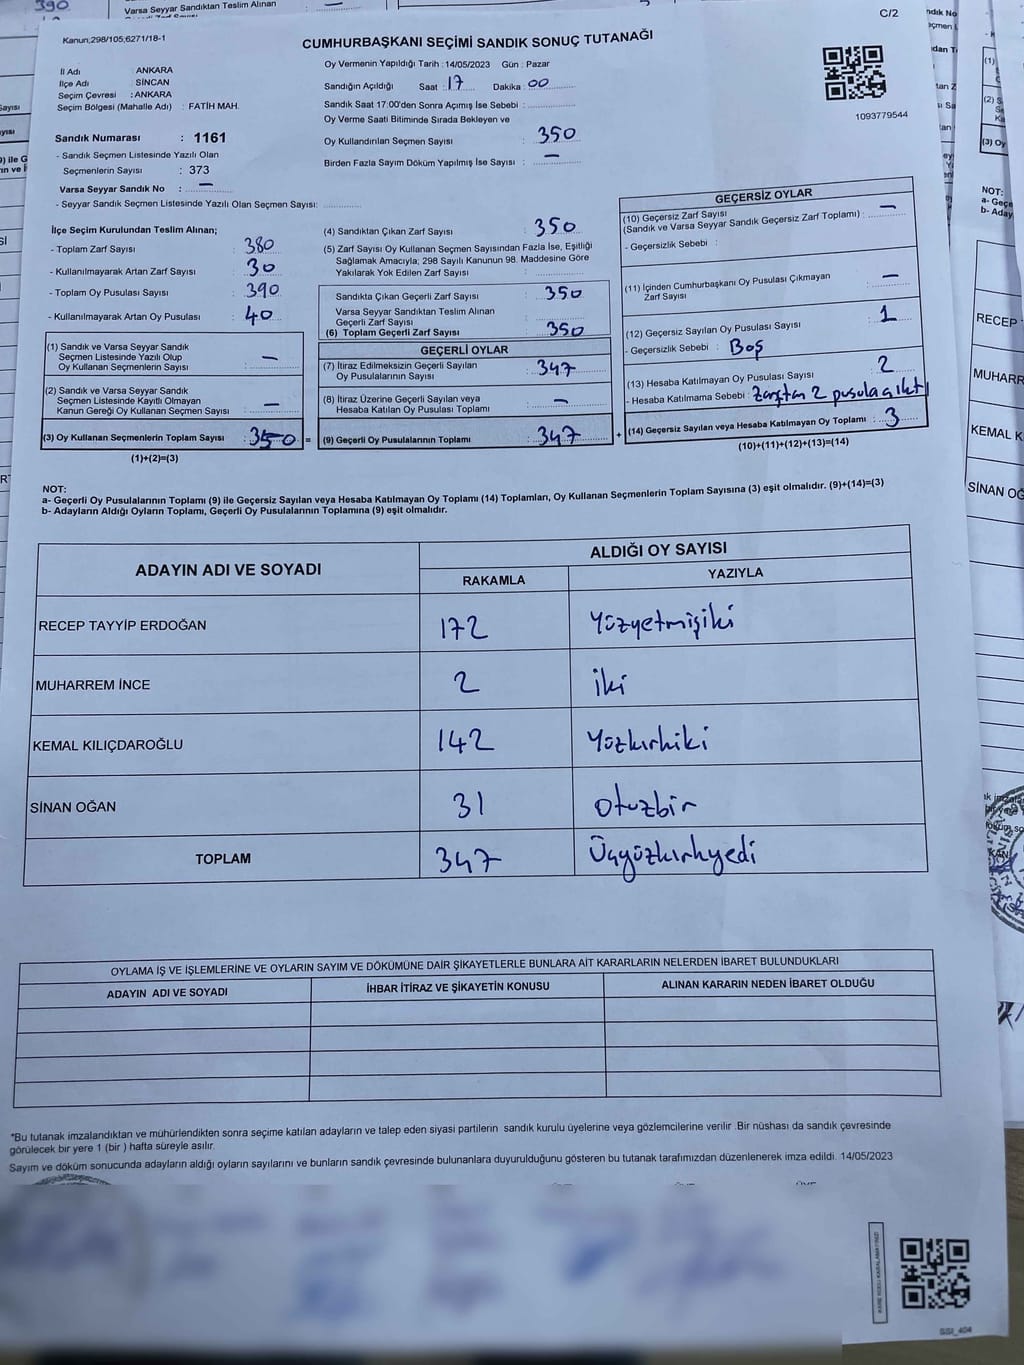 390
Varsa Seyyar Sandıktan Teslim Alınan
C/2
Kanun;298/105;6271/18-1
CUMHURBAŞKANI SEÇİMİ SANDIK SONUÇ TUTANAĞI
İl Adı : ANKARA
İlçe Adı : SİNCAN
Seçim Çevresi : ANKARA
Seçim Bölgesi (Mahalle Adı) : FATİH MAH.
Oy Vermenin Yapıldığı Tarih :14/05/2023 Gün : Pazar
Sandığın Açıldığı Saat : 17 Dakika : 00
Sandık Saat 17:00'den Sonra Açımış İse Sebebi :
Oy Verme Saati Bitiminde Sırada Bekleyen ve
Oy Kullandırılan Seçmen Sayısı : 350
Birden Fazla Sayım Döküm Yapılmış İse Sayısı : —
1093779544
Sandık Numarası : 1161
- Sandık Seçmen Listesinde Yazılı Olan
Seçmenlerin Sayısı : 373
Varsa Seyyar Sandık No : —
- Seyyar Sandık Seçmen Listesinde Yazılı Olan Seçmen Sayısı:
İlçe Seçim Kurulundan Teslim Alınan;
- Toplam Zarf Sayısı : 380
- Kullanılmayarak Artan Zarf Sayısı : 30
- Toplam Oy Pusulası Sayısı : 390
- Kullanılmayarak Artan Oy Pusulası : 40
(1) Sandık ve Varsa Seyyar Sandık
Seçmen Listesinde Yazılı Olup
Oy Kullanan Seçmenlerin Sayısı : —
(2) Sandık ve Varsa Seyyar Sandık
Seçmen Listesinde Kayıtlı Olmayan
Kanun Gereği Oy Kullanan Seçmen Sayısı : —
(3) Oy Kullanan Seçmenlerin Toplam Sayısı : 350 =
(1)+(2)=(3)
(4) Sandıktan Çıkan Zarf Sayısı : 350
(5) Zarf Sayısı Oy Kullanan Seçmen Sayısından Fazla İse, Eşitliği
Sağlamak Amacıyla; 298 Sayılı Kanunun 98. Maddesine Göre
Yakılarak Yok Edilen Zarf Sayısı :
Sandıkta Çıkan Geçerli Zarf Sayısı : 350
Varsa Seyyar Sandıktan Teslim Alınan
Geçerli Zarf Sayısı :
(6) Toplam Geçerli Zarf Sayısı : 350
GEÇERLİ OYLAR
(7) İtiraz Edilmeksizin Geçerli Sayılan
Oy Pusulalarının Sayısı : 347
(8) İtiraz Üzerine Geçerli Sayılan veya
Hesaba Katılan Oy Pusulası Toplamı : —
(9) Geçerli Oy Pusulalarının Toplamı : 347 +
GEÇERSİZ OYLAR
(10) Geçersiz Zarf Sayısı
(Sandık ve Varsa Seyyar Sandık Geçersiz Zarf Toplamı) : —
- Geçersizlik Sebebi :
(11) İçinden Cumhurbaşkanı Oy Pusulası Çıkmayan
Zarf Sayısı : —
(12) Geçersiz Sayılan Oy Pusulası Sayısı : 1
- Geçersizlik Sebebi : Boş
(13) Hesaba Katılmayan Oy Pusulası Sayısı : 2
- Hesaba Katılmama Sebebi : Zarftan 2 pusula çıktı
(14) Geçersiz Sayılan veya Hesaba Katılmayan Oy Toplamı : 3
(10)+(11)+(12)+(13)=(14)
NOT:
a- Geçerli Oy Pusulalarının Toplamı (9) ile Geçersiz Sayılan veya Hesaba Katılmayan Oy Toplamı (14) Toplamları, Oy Kullanan Seçmenlerin Toplam Sayısına (3) eşit olmalıdır. (9)+(14)=(3)
b- Adayların Aldığı Oyların Toplamı, Geçerli Oy Pusulalarının Toplamına (9) eşit olmalıdır.
ADAYIN ADI VE SOYADI
ALDIĞI OY SAYISI
RAKAMLA YAZIYLA
RECEP TAYYİP ERDOĞAN 172 Yüzyetmişiki
MUHARREM İNCE 2 iki
KEMAL KILIÇDAROĞLU 142 Yüzkırkiki
SİNAN OĞAN 31 otuzbir
TOPLAM 347 Üçyüzkırkyedi
OYLAMA İŞ VE İŞLEMLERİNE VE OYLARIN SAYIM VE DÖKÜMÜNE DAİR ŞİKAYETLERLE BUNLARA AİT KARARLARIN NELERDEN İBARET BULUNDUKLARI
ADAYIN ADI VE SOYADI İHBAR İTİRAZ VE ŞİKAYETİN KONUSU ALINAN KARARIN NEDEN İBARET OLDUĞU
*Bu tutanak imzalandıktan ve mühürlendikten sonra seçime katılan adayların ve talep eden siyasi partilerin sandık kurulu üyelerine veya gözlemcilerine verilir .Bir nüshası da sandık çevresinde
görülecek bir yere 1 (bir ) hafta süreyle asılır.
Sayım ve döküm sonucunda adayların aldığı oyların sayılarını ve bunların sandık çevresinde bulunanlara duyurulduğunu gösteren bu tutanak tarafımızdan düzenlenerek imza edildi. 14/05/2023
NOT:
RECEP
MUHARR
KEMAL K
SİNAN OĞ